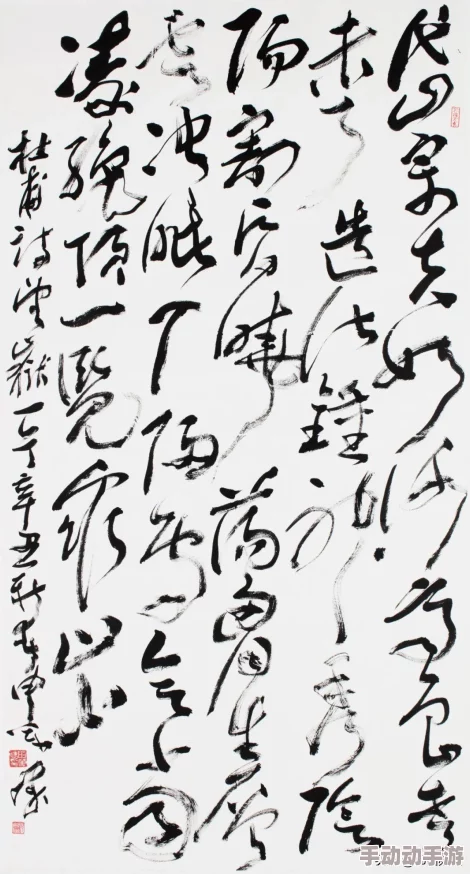 岱宗夫如何齊魯青
未了造化鍾神秀陰
陽割昏曉蕩胸生層
雲決眦入歸鳥會當
凌絕頂一覽衆山小
杜甫詩望嶽一首辛丑新春
手动动手游